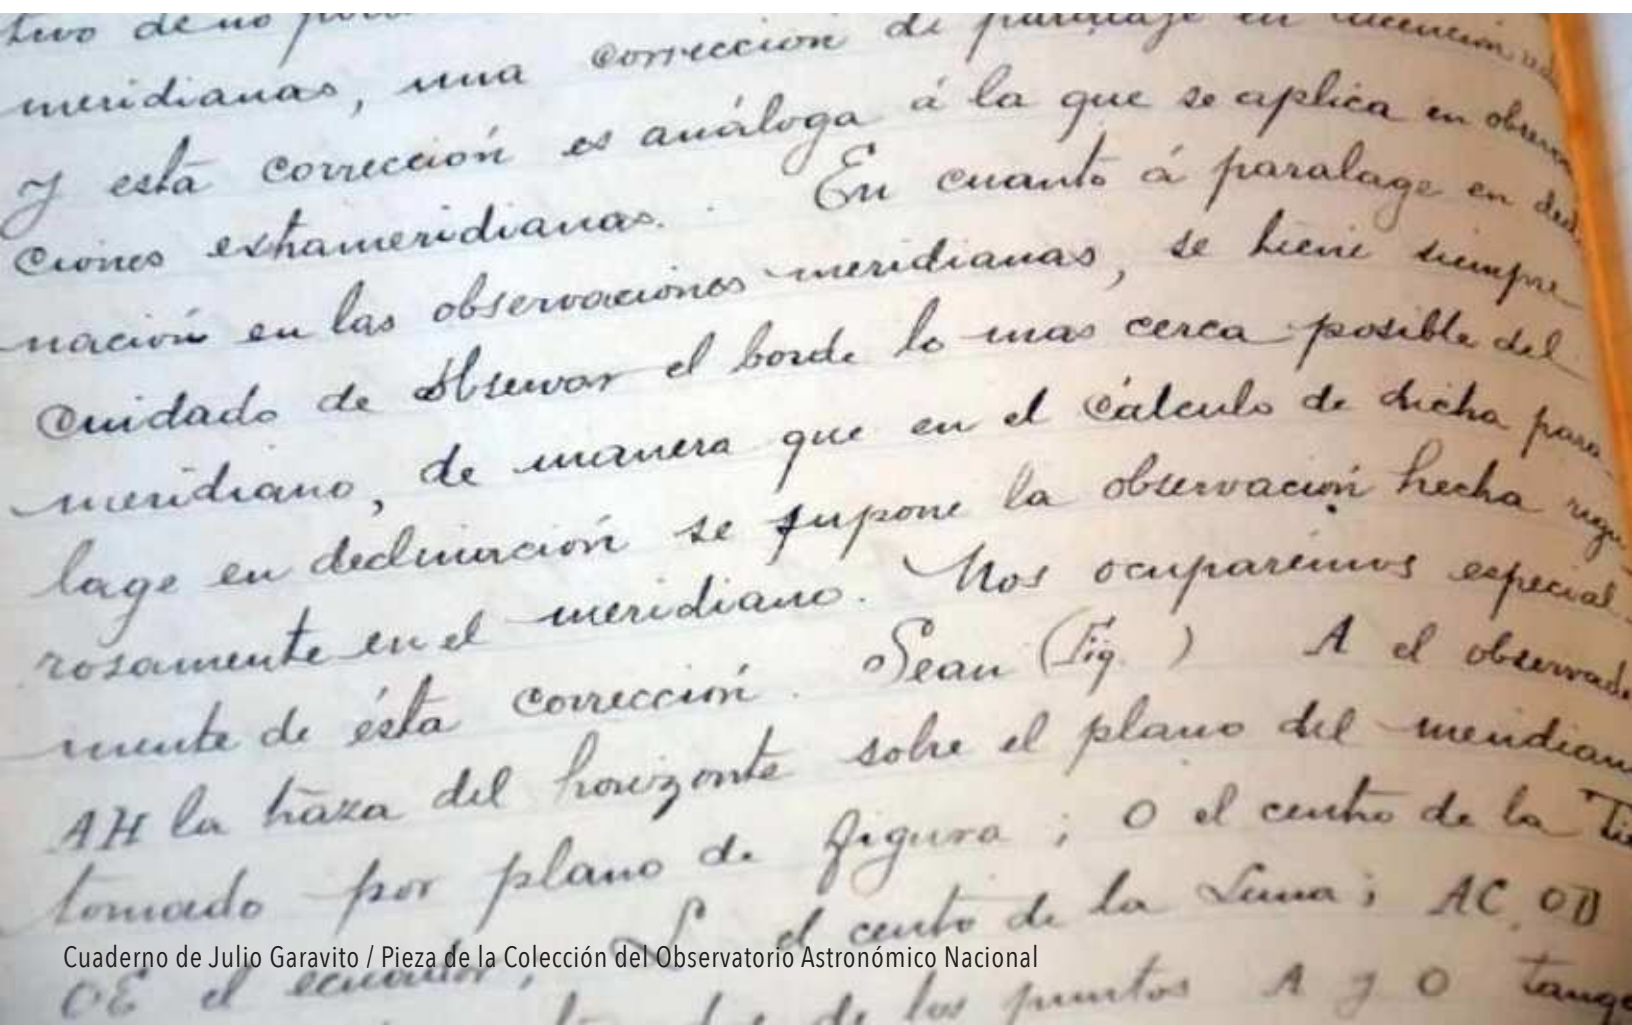 tivo de no
meridianas, una corrección de paralage en ascención
y esta corrección es análoga á la que se aplica en observa
ciones extrameridianas. En cuanto á paralage en decli
nación en las observaciones meridianas, se tiene siempre
cuidado de observar el borde lo mas cerca posible del
meridiano, de manera que en el cálculo de dicha para-
lage en declinación se supone la observación hecha rigu
rosamente en el meridiano. Nos ocuparémos especial-
mente de ésta corrección. Sean (Fig. ) A el observado
AH la traza del horizonte sobre el plano del meridian
tomado por plano de figura; O el centro de la Tie
OE el ecuador, L el centro de la Luna; AC, OD
de los puntos A y O tange
Cuaderno de Julio Garavito / Pieza de la Colección del Observatorio Astronómico Nacional